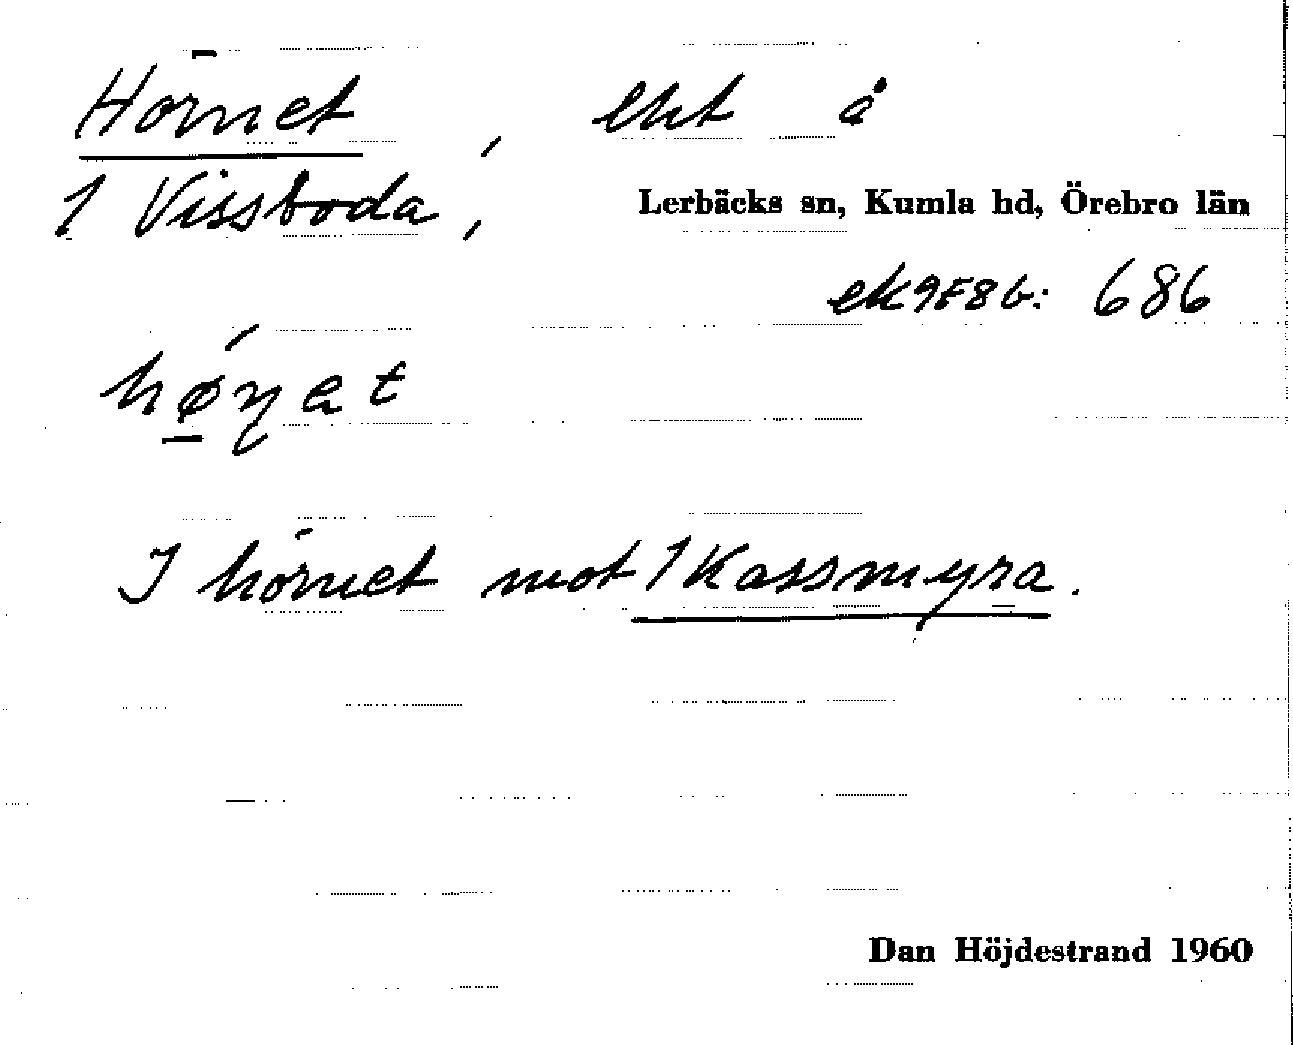 Hörnet, lht å
1 Vissboda, Lerbäcks sn, Kumla hd, Örebro län
ek 9F8b: 686
hø̱ṇet
I hörnet mot 1 Kassmyra.
Dan Höjdestrand 1960